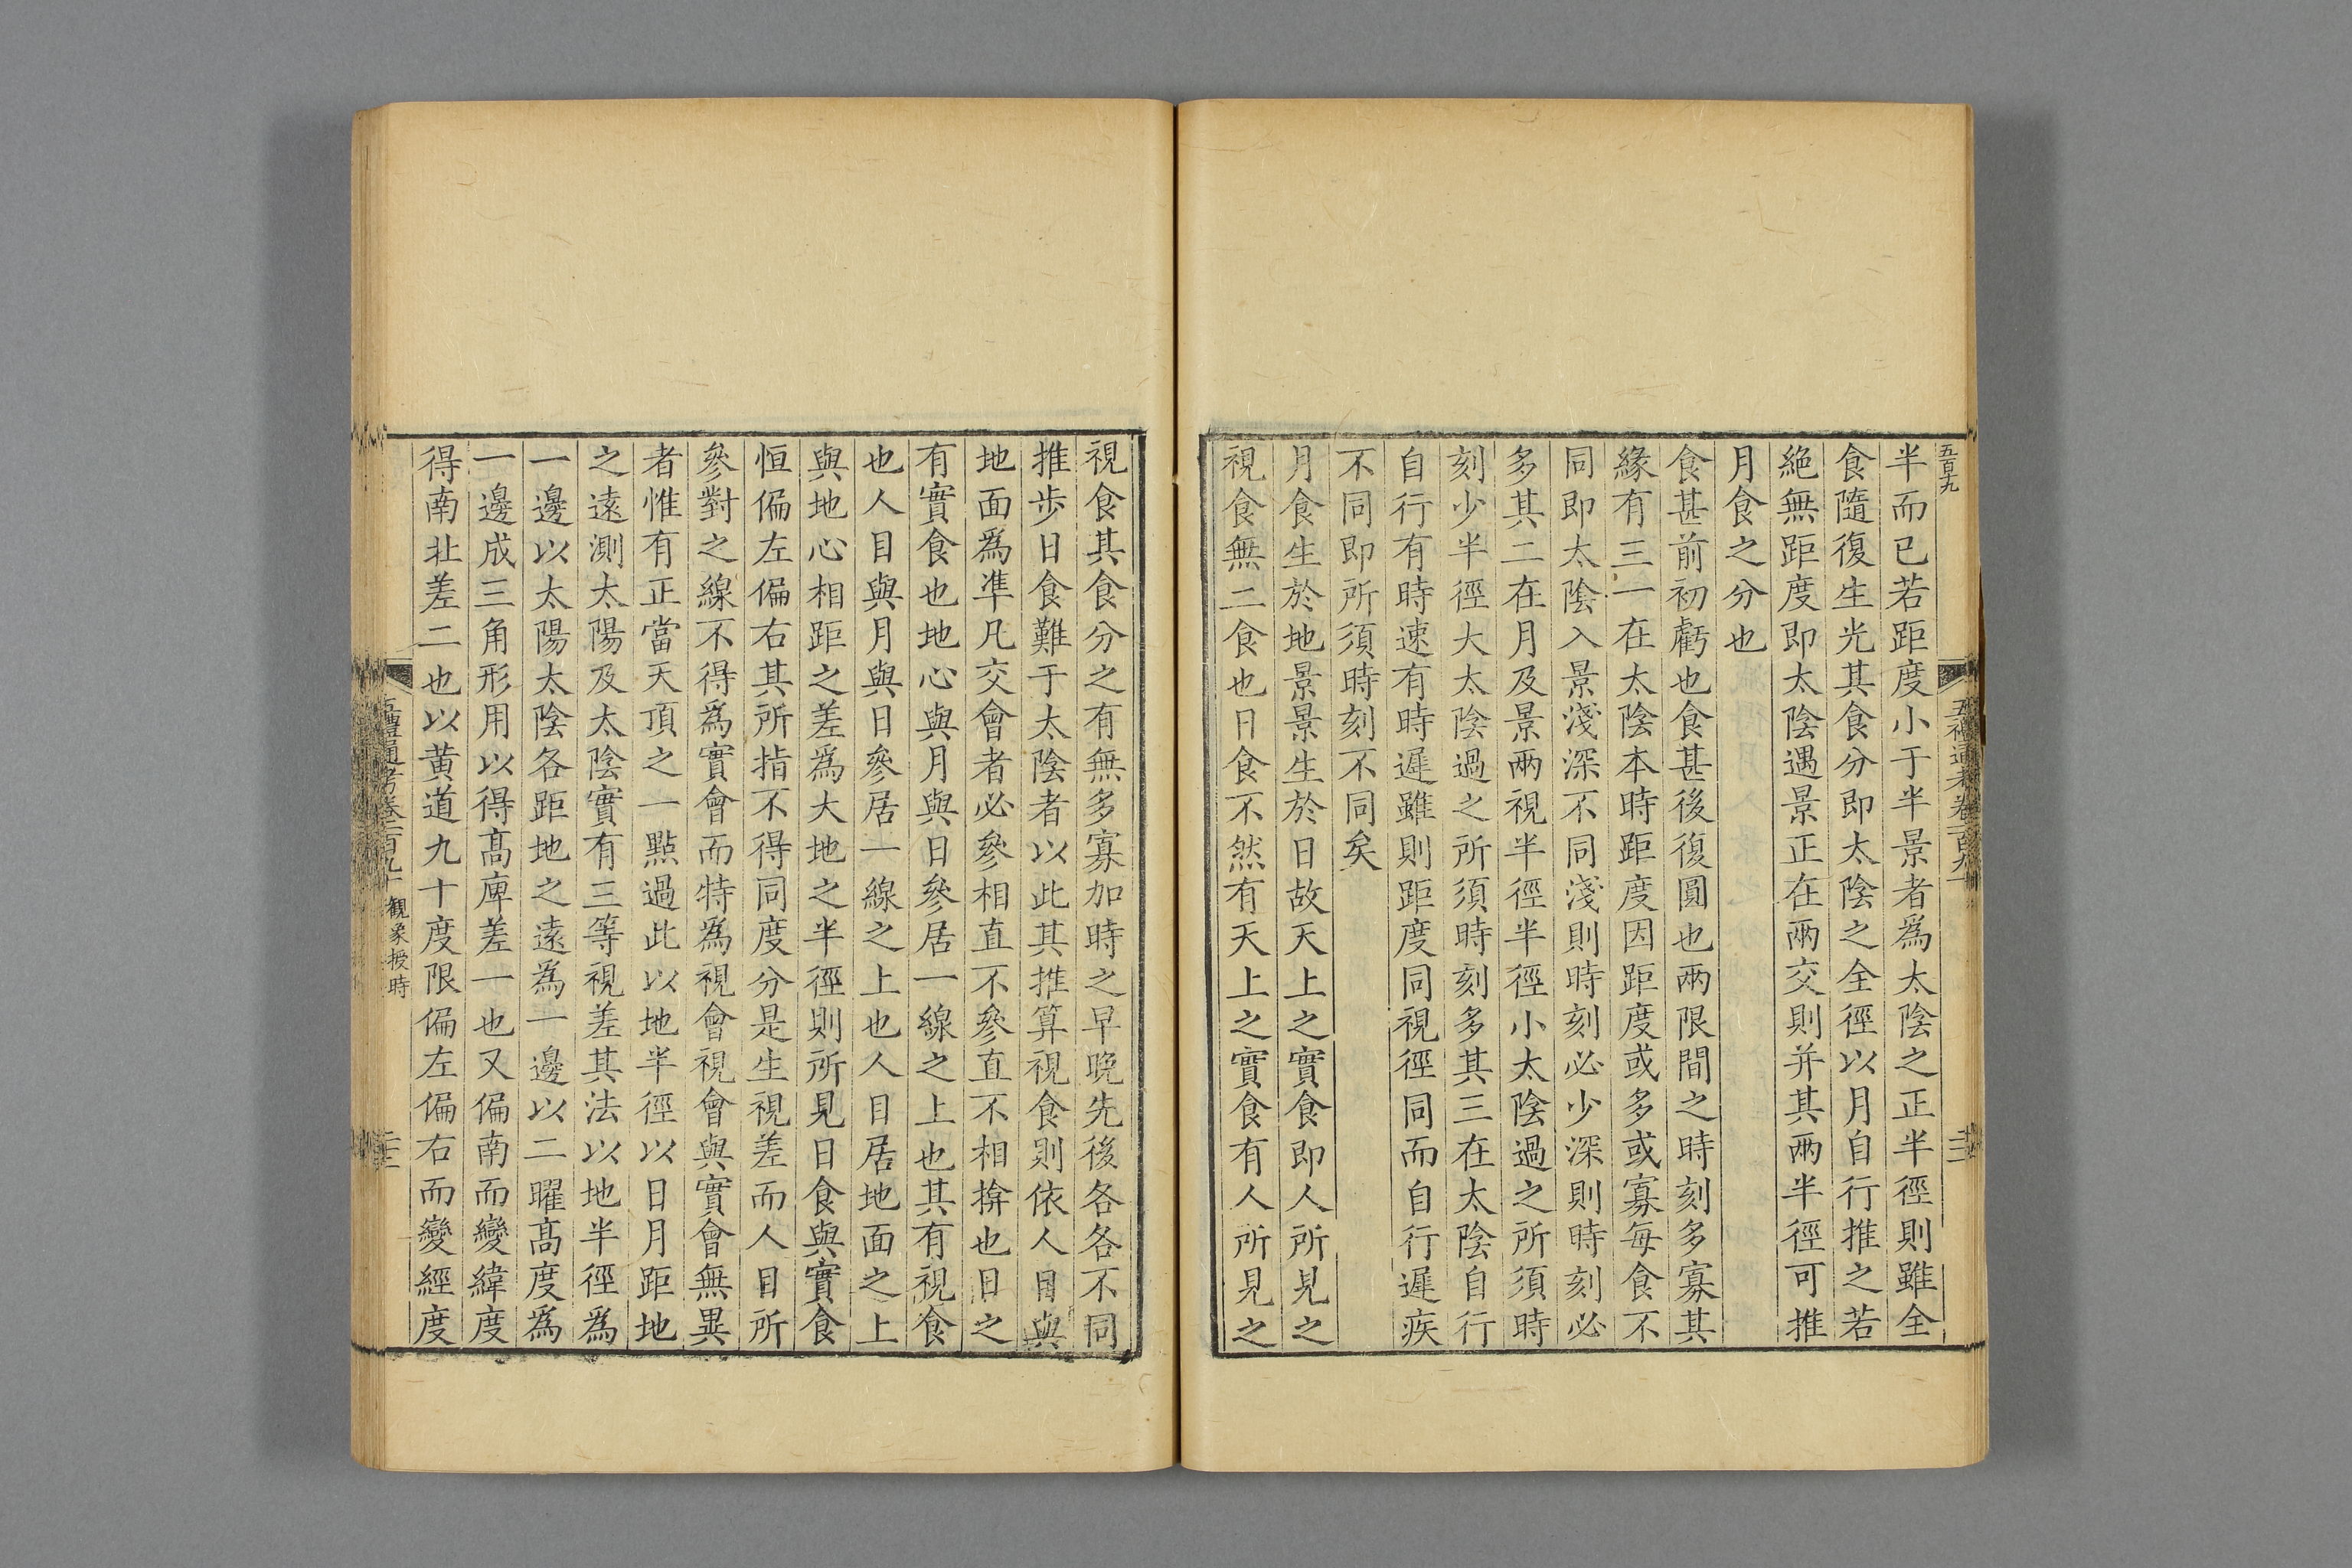 五百九
五禮通考卷一百九
半而已若距度小于半景者為太陰之正半徑則雖全
食隨復生光其食分即太陰之全徑以月自行推之若
絶無距度即太陰遇景正在兩交則并其兩半徑可推
月食之分也
食甚前初虧也食甚後復圓也兩限間之時刻多寡其
緣有三一在太陰本時距度因距度或多或寡每食不
同即太陰入景淺深不同淺則時刻必少深則時刻必
多其二在月及景兩視半徑半徑小太陰過之所須時
刻少半徑大太陰過之所須時刻多其三在太陰自行
自行有時速有時遲雖則距度同視徑同而自行遲疾
不同即所須時刻不同矣
月食生於地景景生於日故天上之實食即人所見之
視食無二食也日食不然有天上之實食有人所見之
視食其食分之有無多寡加時之早晩先後各各不同
推步日食難于太陰者以此其推算視食則依人目與
地面爲凖凡交會者必參相直不參直不相揜也日之
有實食也地心與月與日參居一線之上也其有視食
也人目與月與日參居一線之上也人目居地面之上
與地心相距之差爲大地之半徑則所見日食與實食
恒偏左偏右其所指不得同度分是生視差而人目所
參對之線不得爲實會而特爲視會視會與實會無異
者惟有正當天頂之一點過此以地半徑以日月距地
之遠測太陽及太陰實有三等視差其法以地半徑爲
一邊以太陽太陰各距地之遠爲一邊以二曜髙度爲
一邊成三角形用以得髙庳差一也又偏南而變緯度
得南北差二也以黄道九十度限偏左偏右而變經度
五禮通考卷一百九十 觀象授時